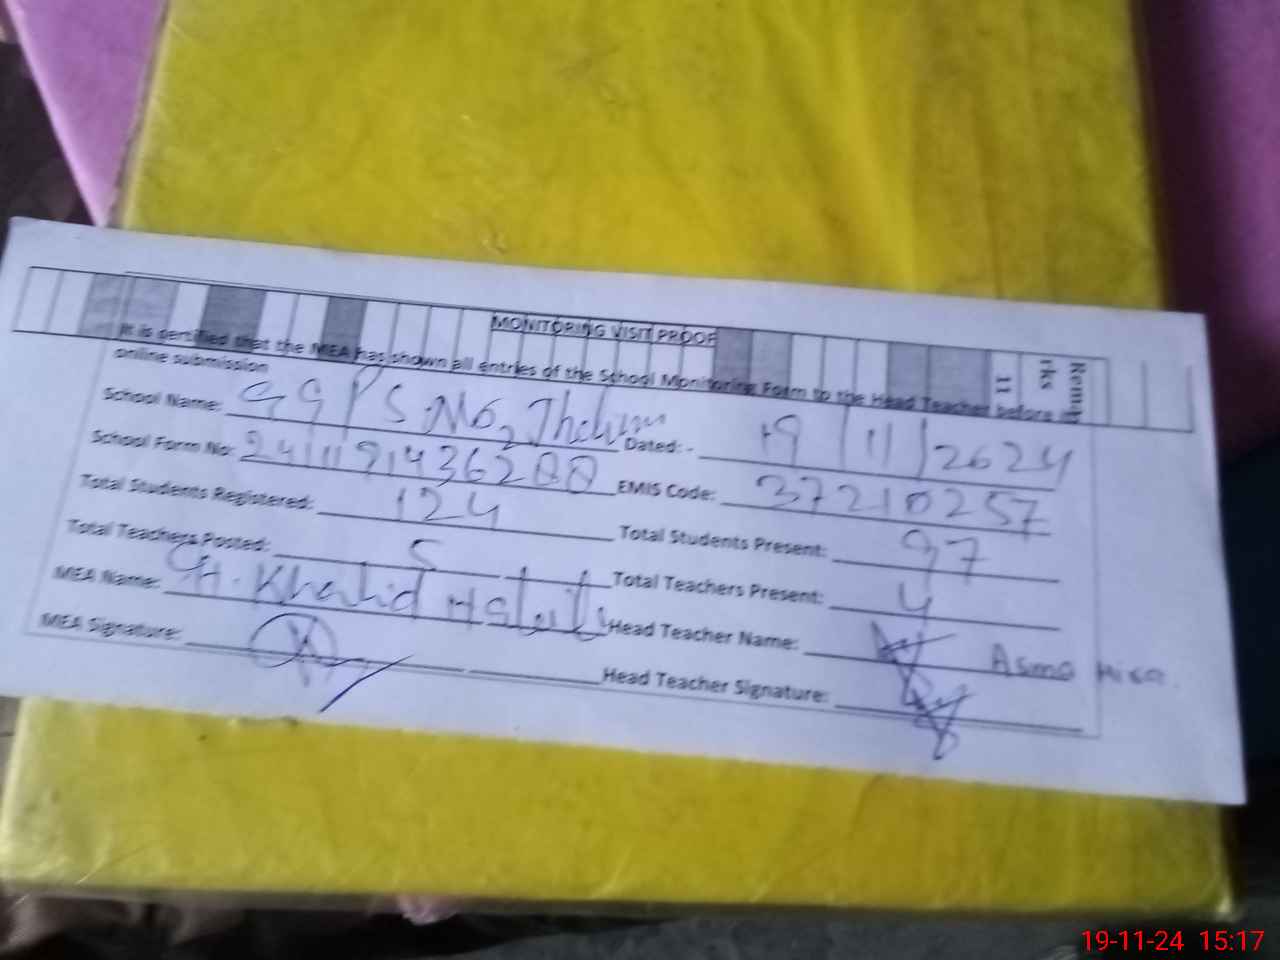 MONITORING VISIT PROOF
It is certified that the MEA has shown all entries of the School Monitoring Form to the Head Teacher before it
online submission
Remarks
11
School Name: GGPS. No 2 Jhelum Dated:- 19/11/2024
School Form No: EMIS Code: 37210257
Total Students Registered: 124 Total Students Present: 97
Total Teachers Posted: 5 Total Teachers Present: 4
MEA Name: Ch. Khalid Head Teacher Name: Asma
MEA Signature: Head Teacher Signature:
19-11-24 15:17